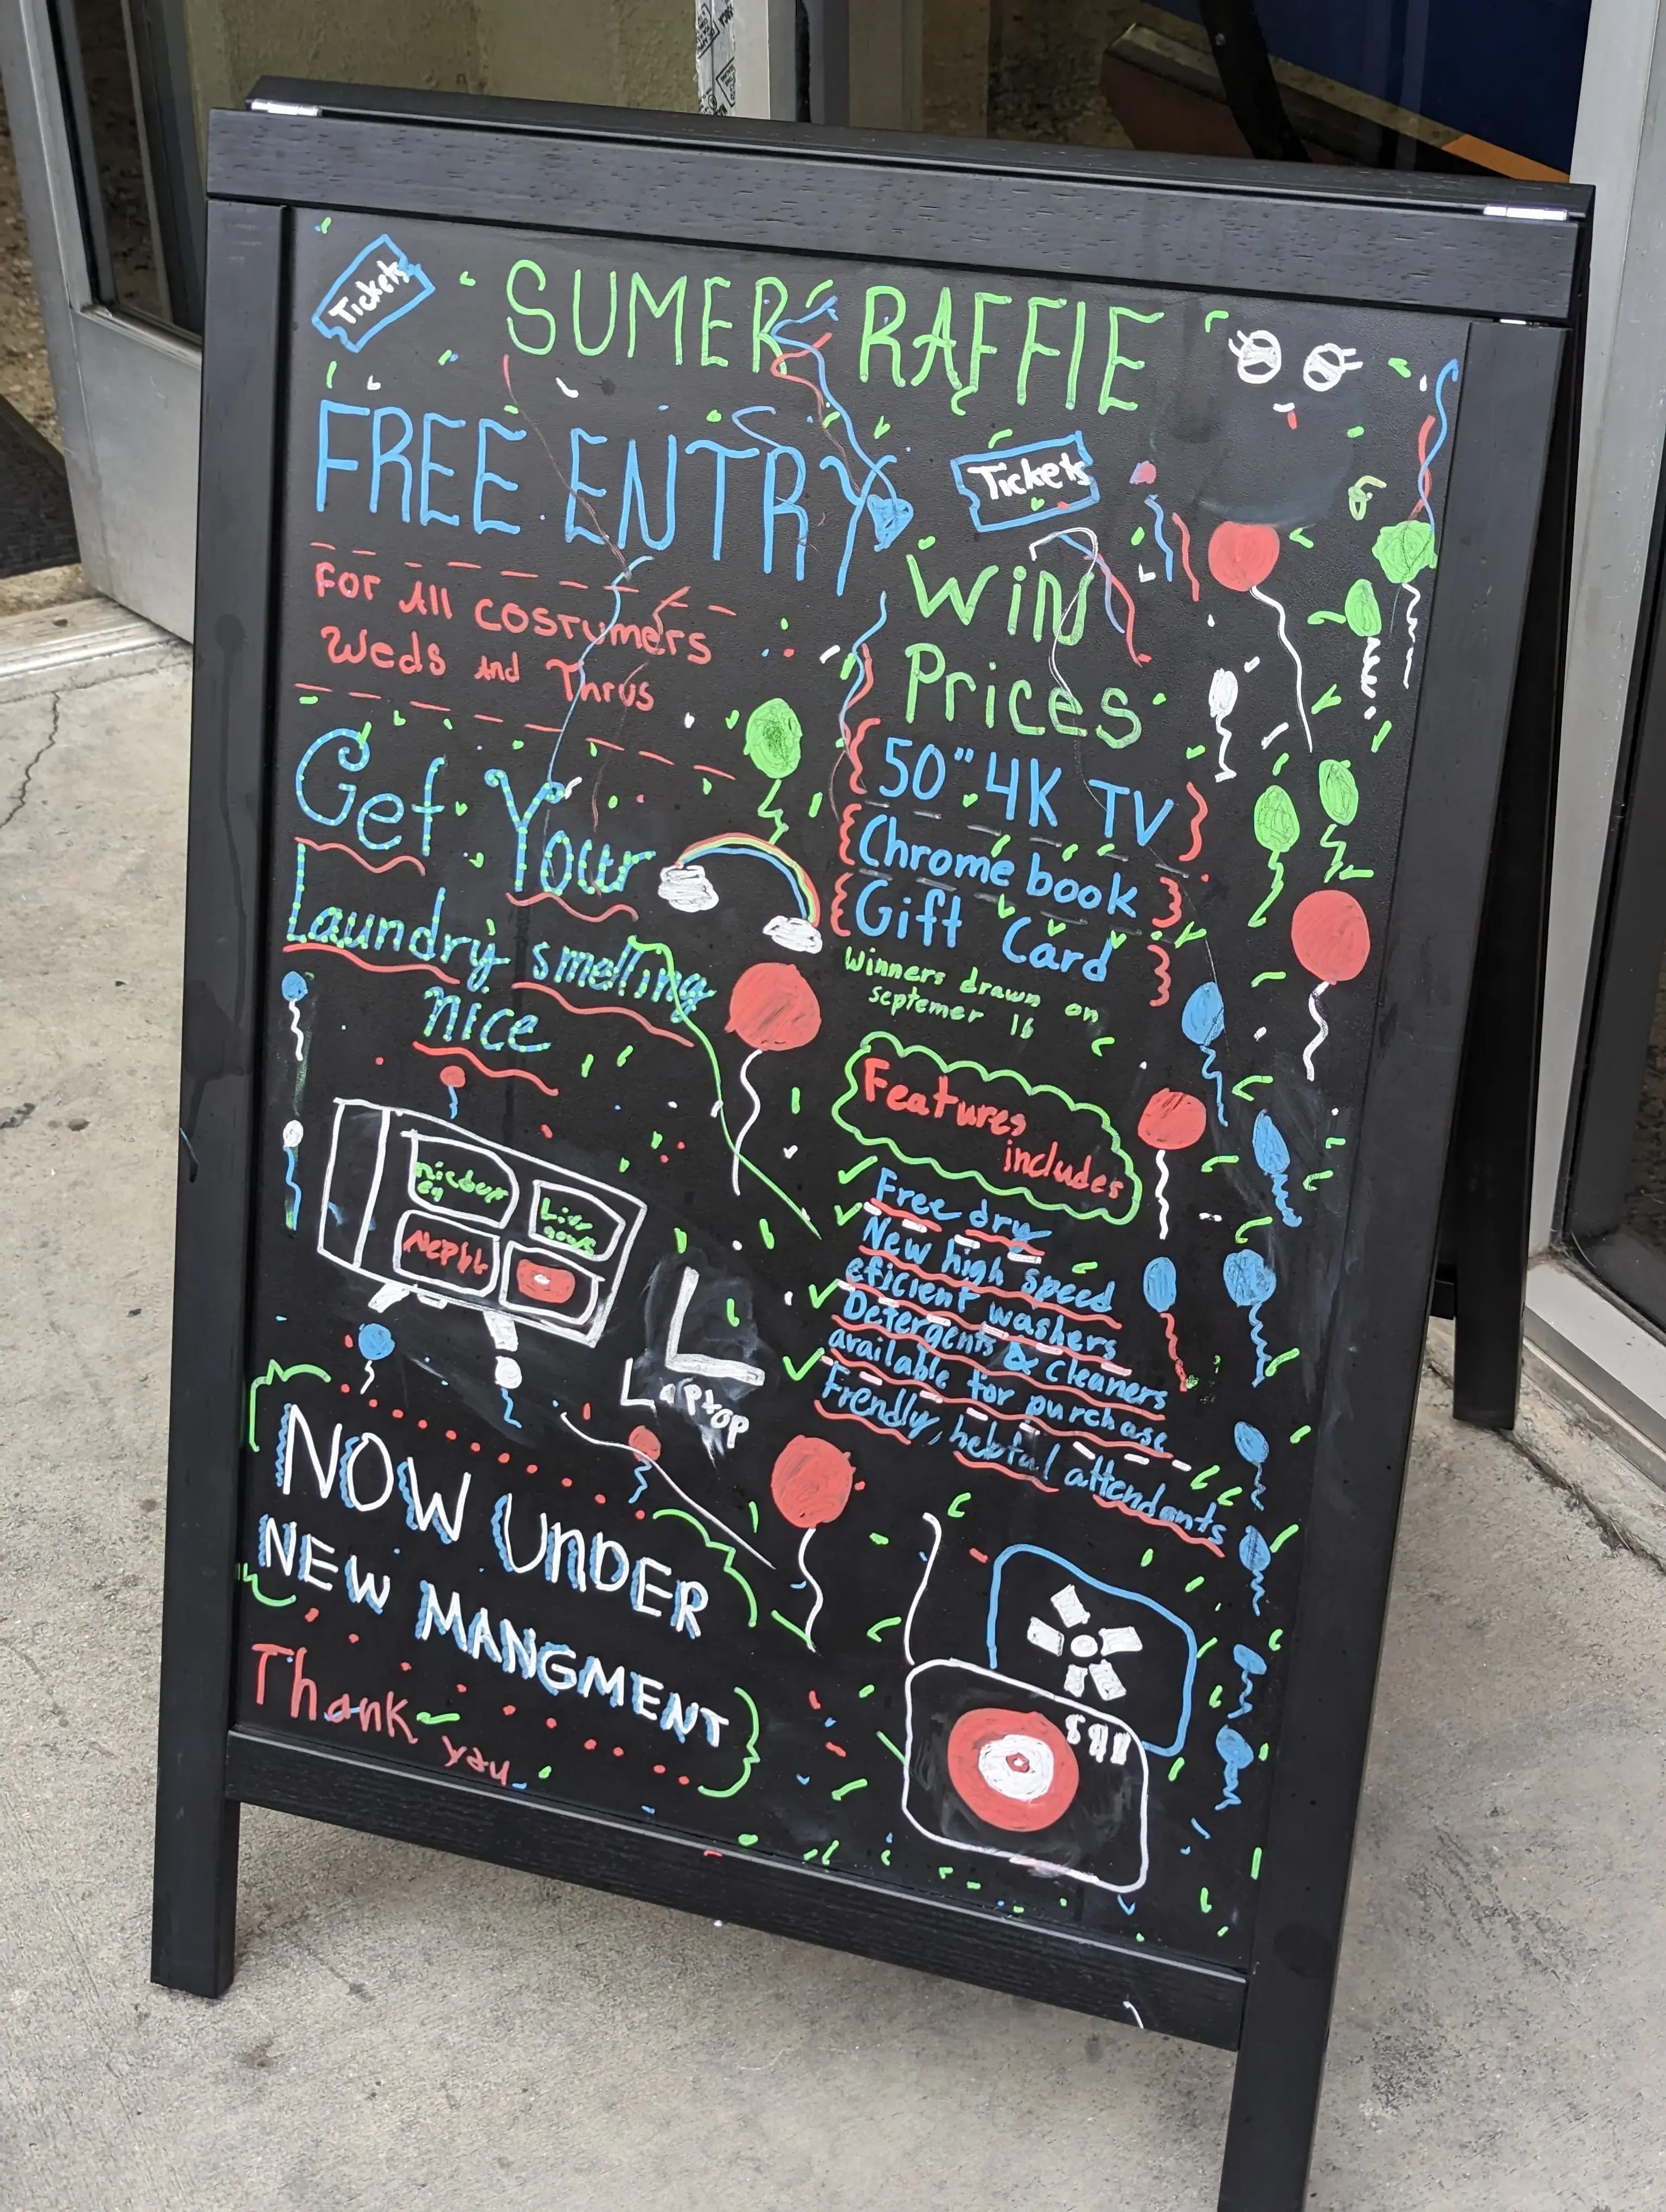 Tickets
SUMER RAFFlE
FREE ENTRY
Tickets
For All COSTumers
Weds And Thrus
Get Your
Laundry smelling
nice
Win
Prices
50" 4K TV
Chromebook
Gift Card
Winners drawn on
septemer 16
Features
includes
Free dry
New high speed
eficient washers
Detergents & Cleaners
available for purchase
Frendly, helpful attendants
Live
L
Laptop
NOW UNDER
NEW MANGMENT
Thank you